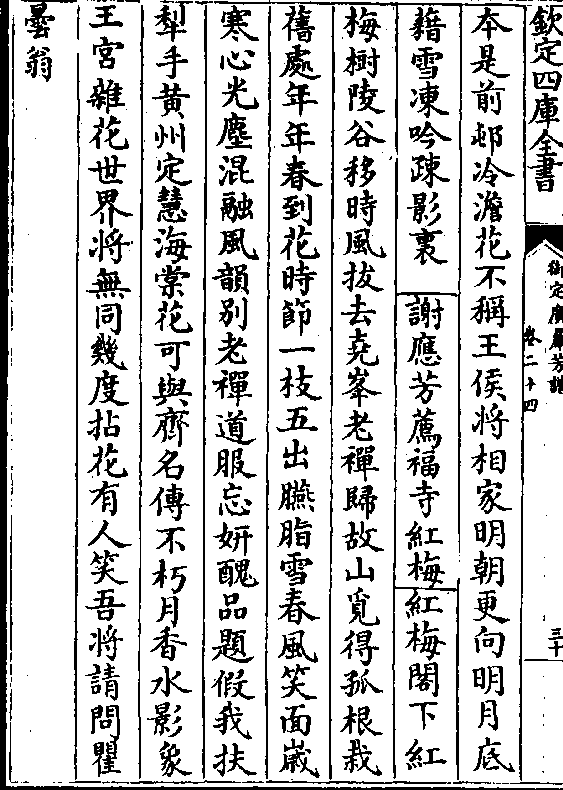 欽定四庫全書
御定廣羣芳譜
卷二十四
三十
本是前邨冷澹花不稱王侯将相家明朝更向明月底
藉雪凍吟疎影裏　謝應芳薦福寺紅梅　紅梅閣下紅
梅樹陵谷移時風拔去堯峯老禪歸故山覓得孤根栽
舊處年年春到花時節一枝五出臙脂雪春風笑面嵗
寒心光塵混融風韻别老禪道服忘妍醜品題假我扶
犁手黄州定慧海棠花可與齊名傳不朽月香水影象
王宫雜花世界将無同幾度拈花有人笑吾将請問瞿
曇翁